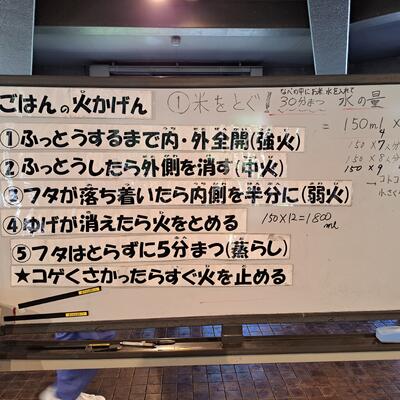 なべの中にお米 水を入れて
ごはんの火かげん
①米をとぐ! 30分まつ 水の量
= 150ml
①ふっとうするまで内・外全開(強火)
150×7人分
②ふっとうしたら外側を消す(中火)
150×8人分
150×9
③フタが落ち着いたら内側を半分に(弱火)
→コトコト
小さく
④ゆげが消えたら火をとめる
150×12=1800
ml
⑤フタはとらずに5分まつ(蒸らし)
★コゲくさかったらすぐ火を止める